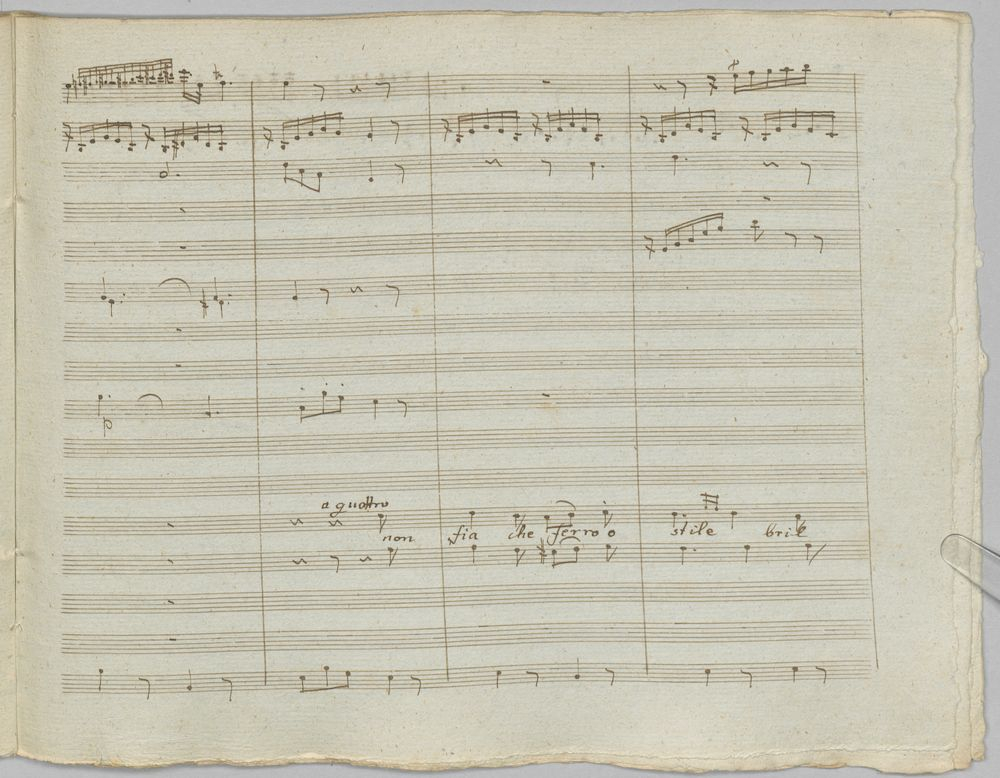 p
a quattro
non fia che ferro o stile bril